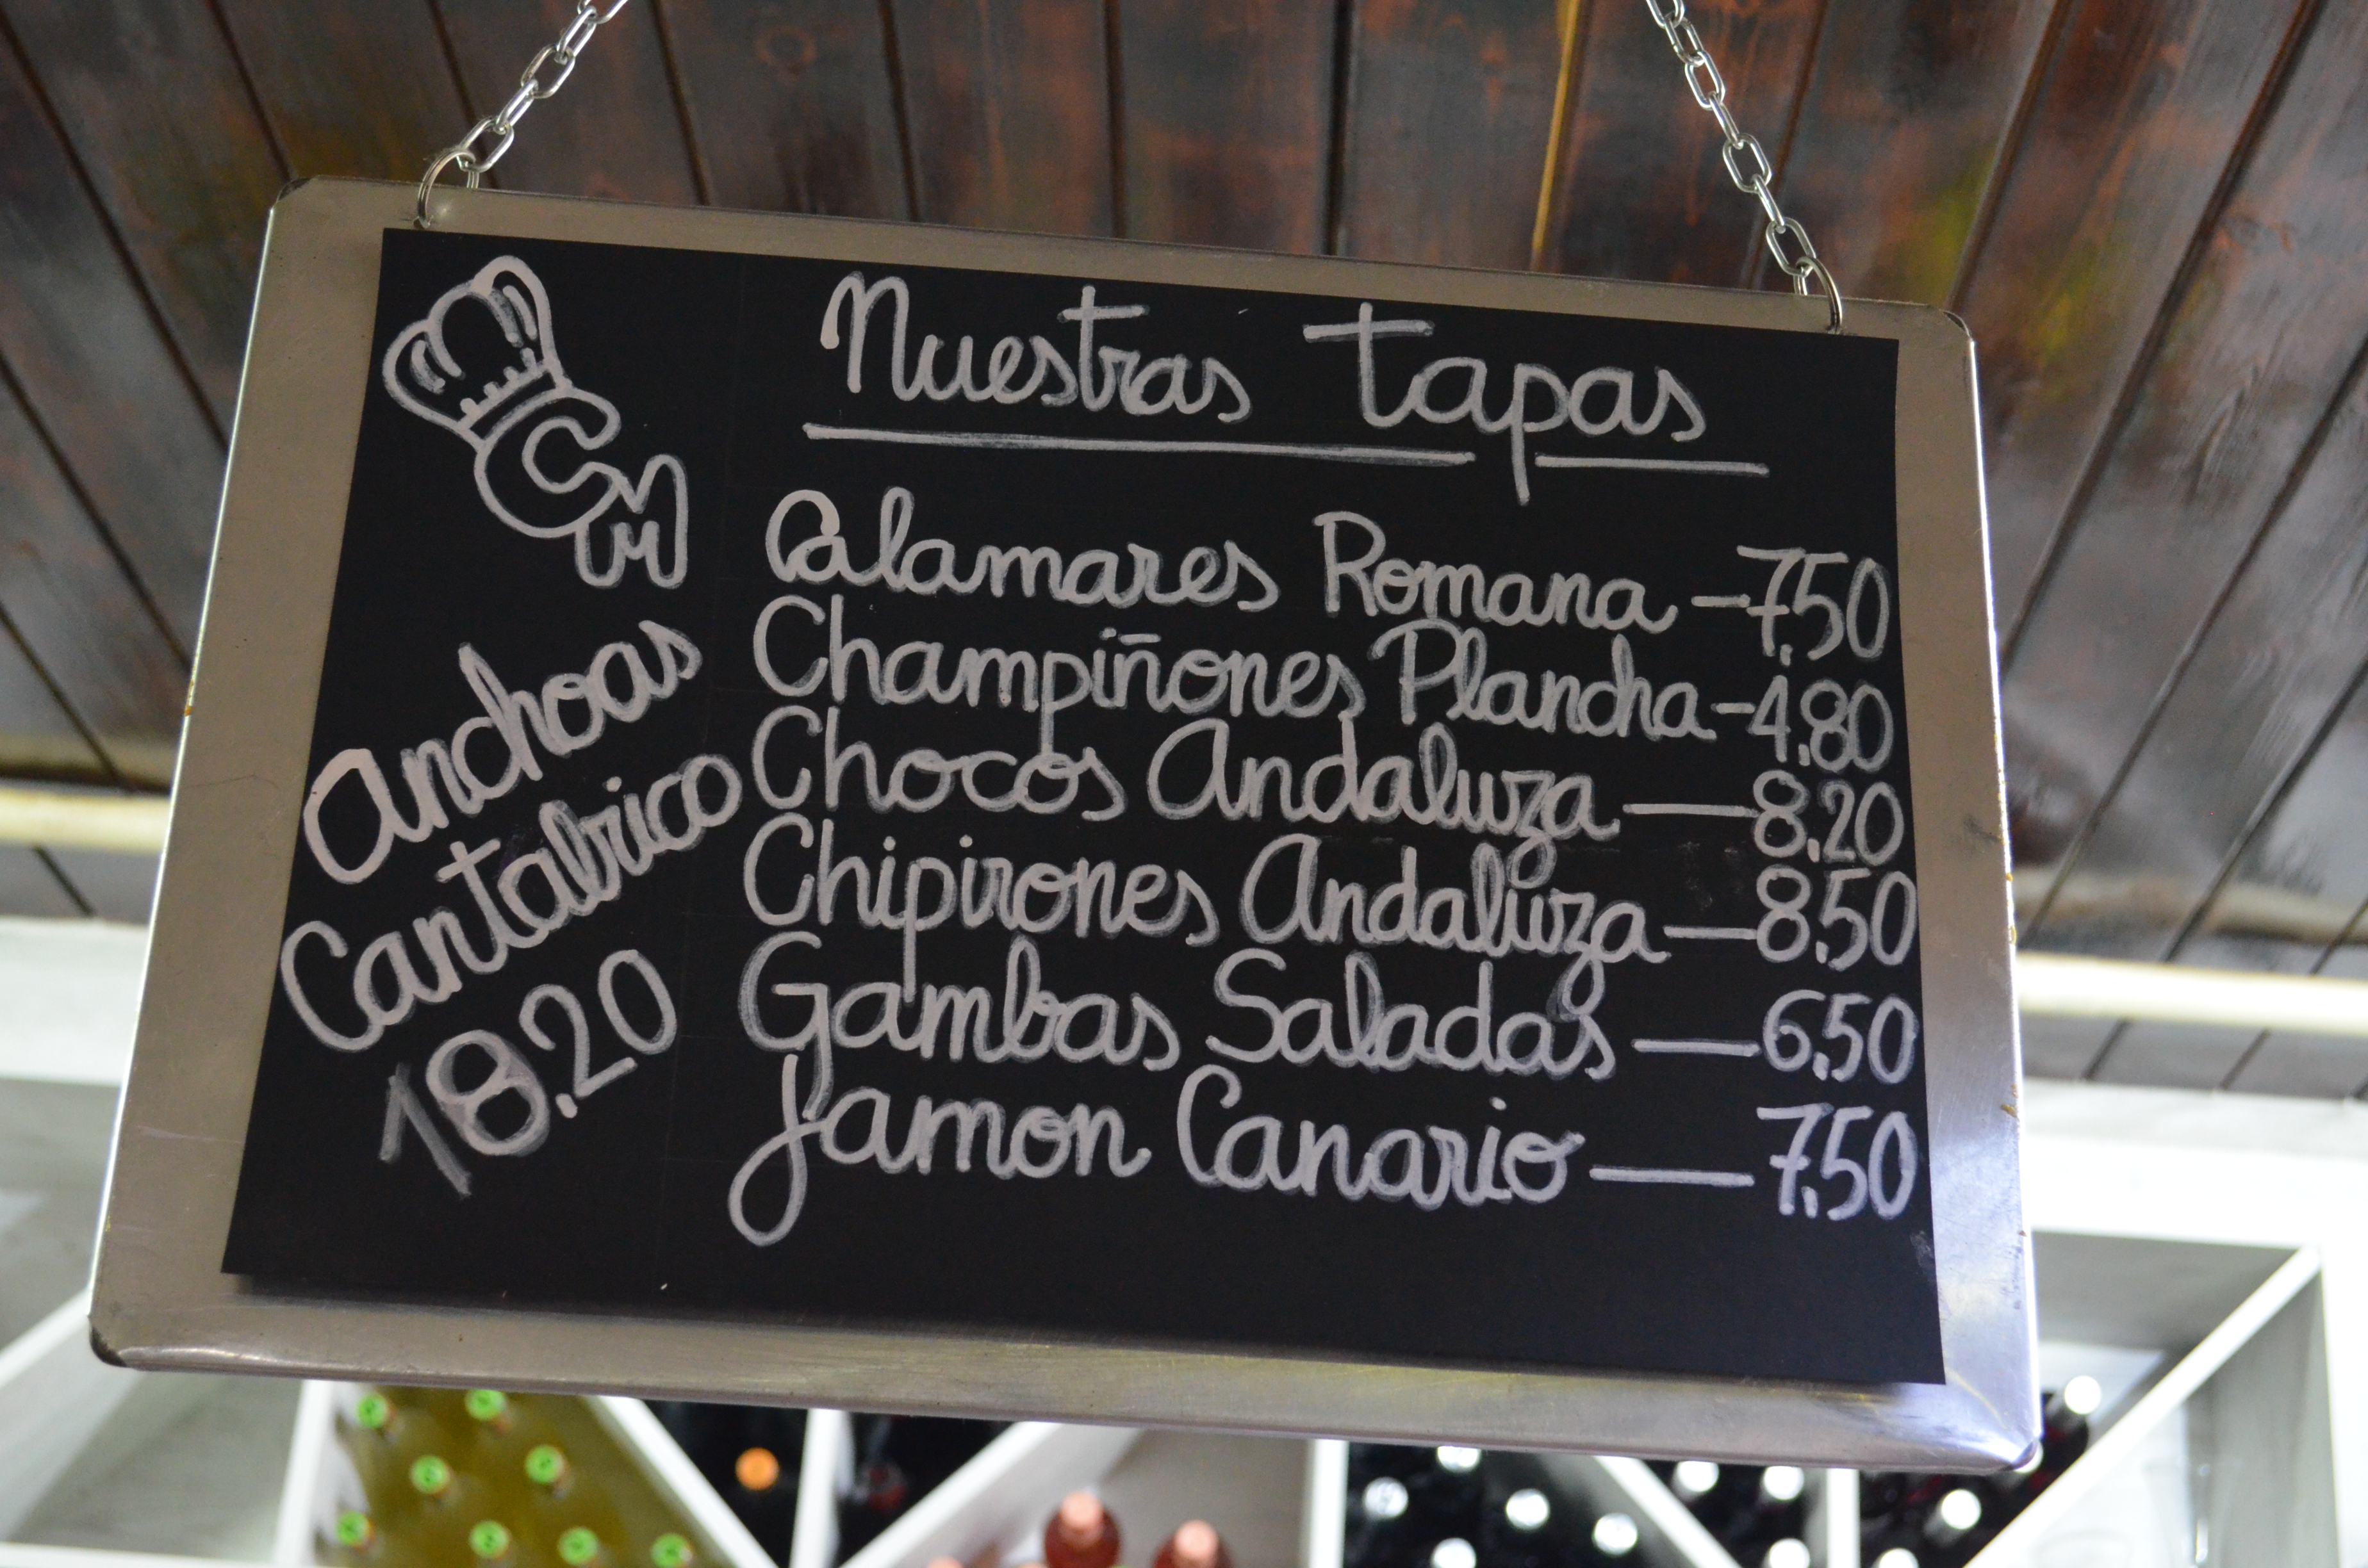 CM
Nuestras tapas
Calamares Romana - 7,50
Champiñones Plancha - 4,80
Chocos Andaluza - 8,20
Chipirones Andaluza - 8,50
Gambas Saladas - 6,50
Jamon Canario - 7,50
Anchoas
Cantabrico
18,20